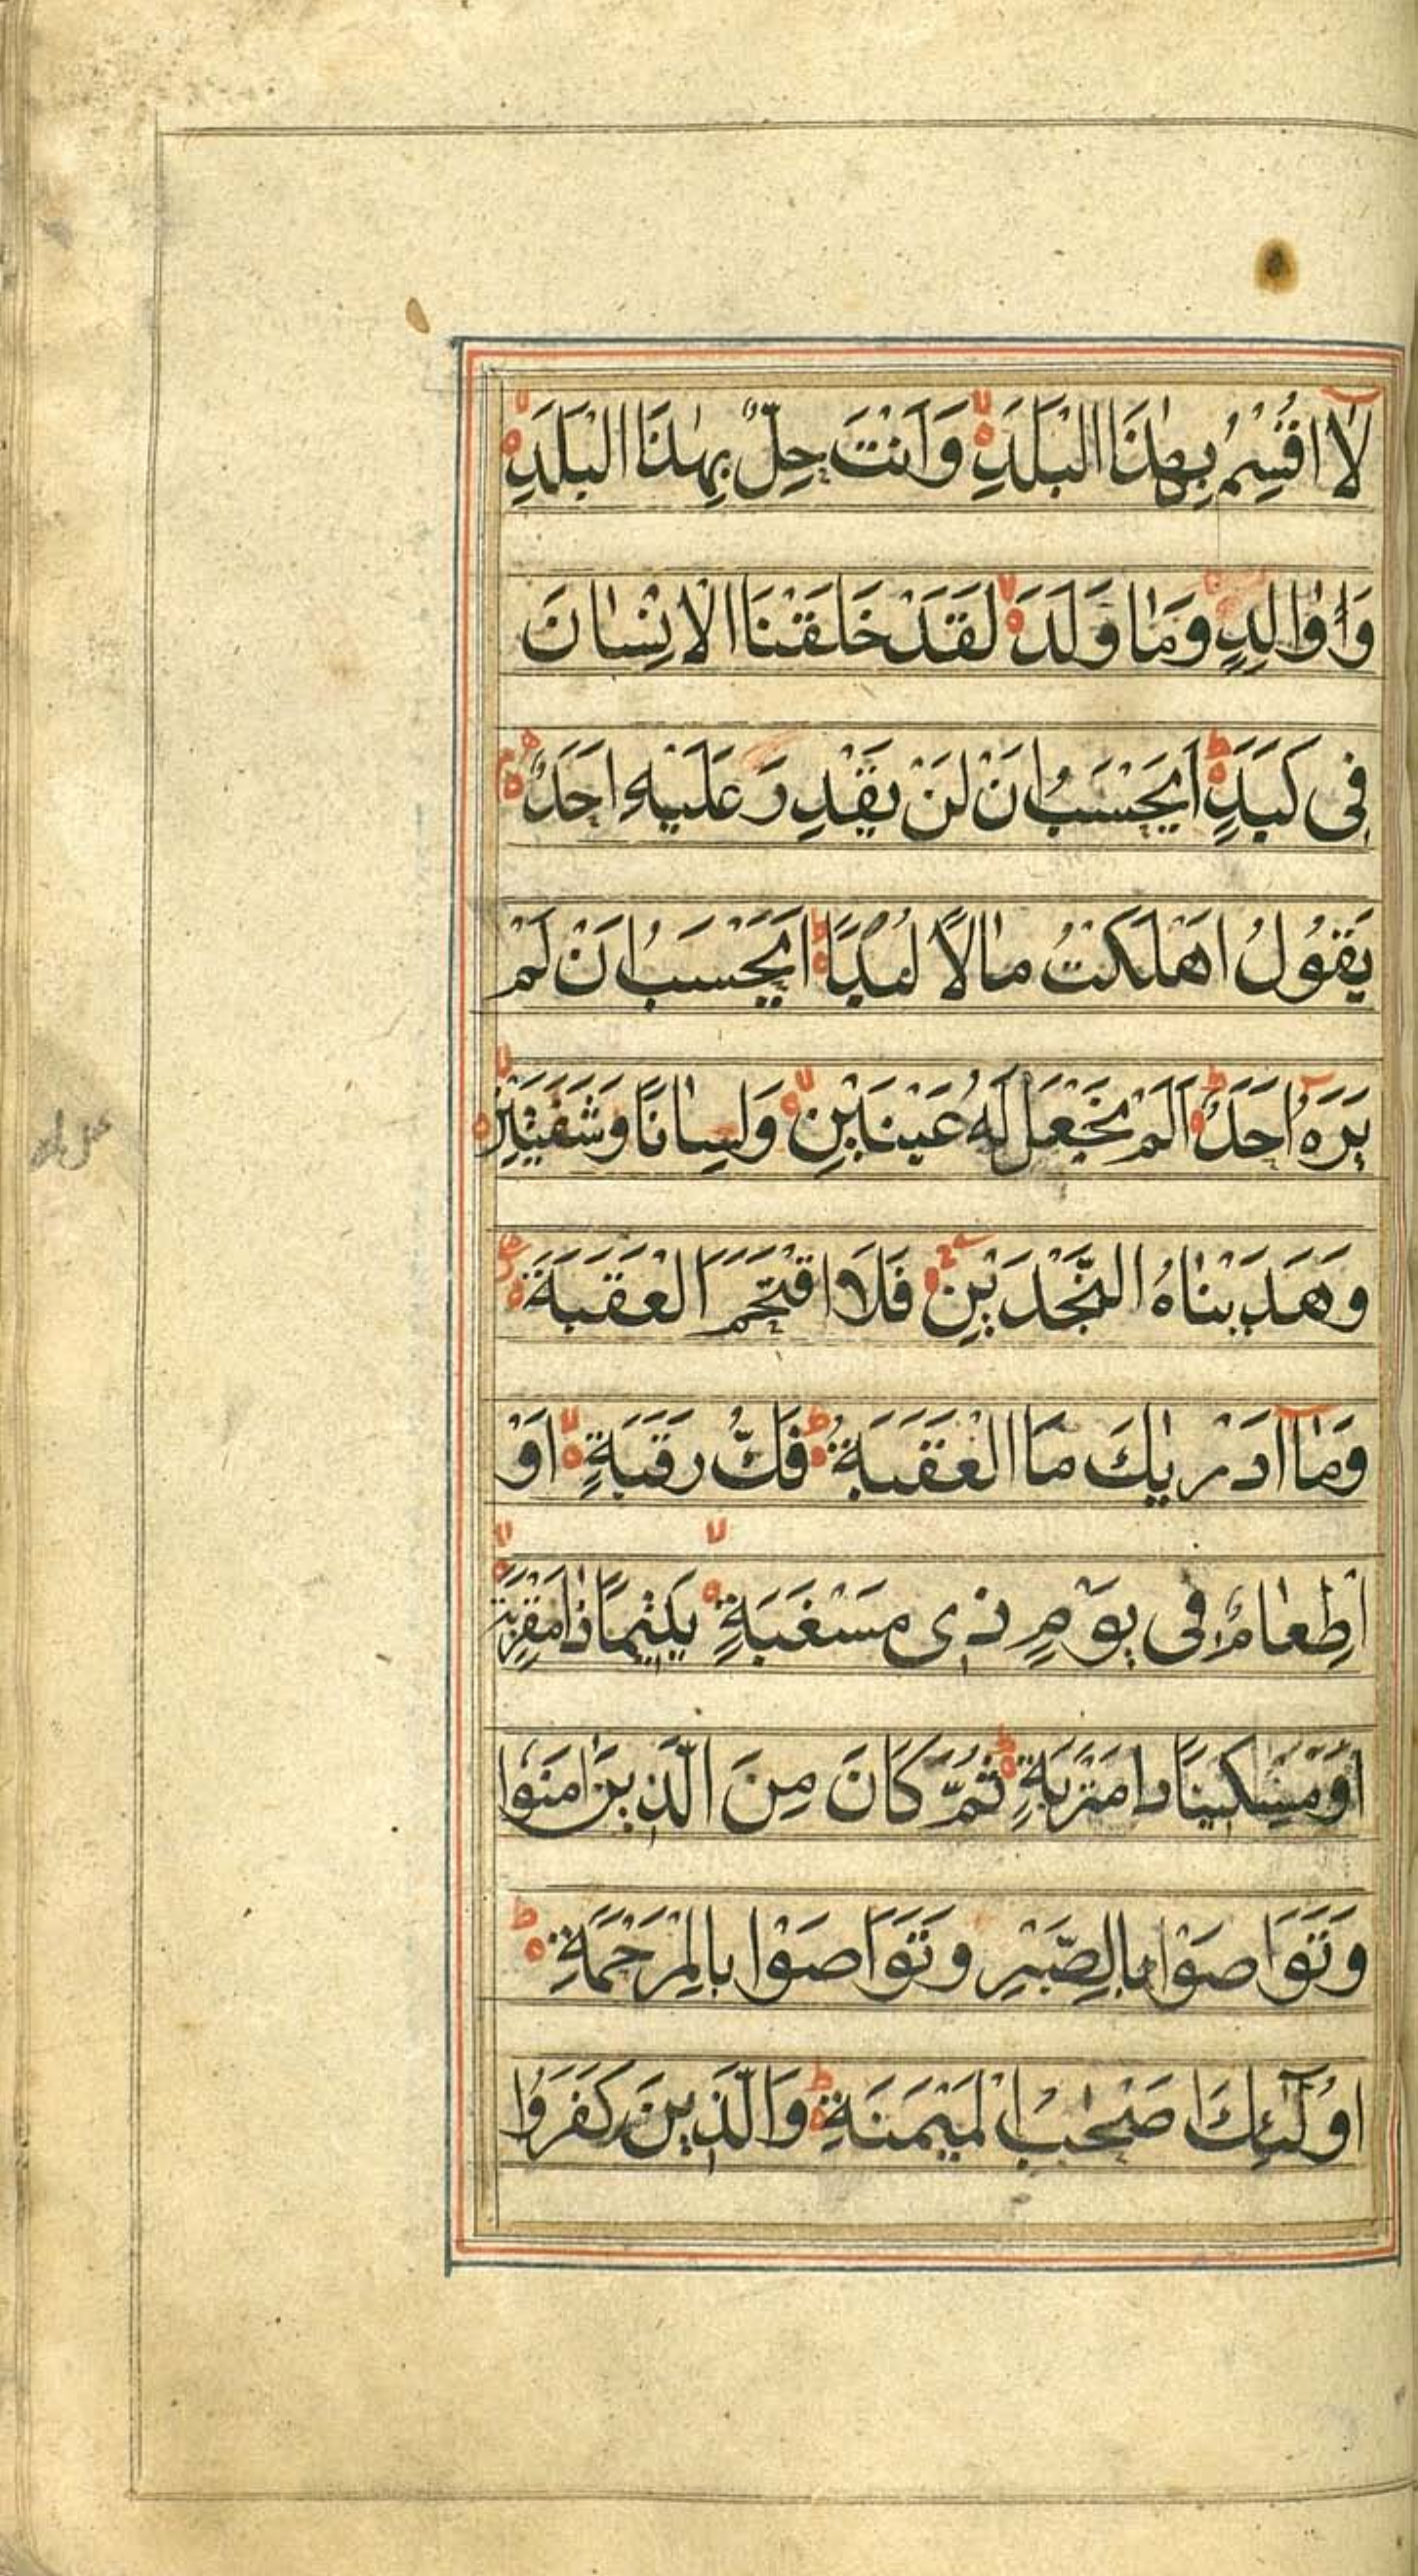 لَا اُقْسِمُ بِهٰذَا الْبَلَدِ وَاَنْتَ حِلٌّ بِهٰذَا الْبَلَدِ
وَاوَالِدٍ وَمَا وَلَدَ لَقَدْ خَلَقْنَا الْاِنْسَانَ
فِى كَبَدٍ اَيَحْسَبُ اَنْ لَنْ يَقْدِرَ عَلَيْهِ اَحَدٌ
يَقُولُ اَهْلَكْتُ مَالًا لُبَدًا اَيَحْسَبُ اَنْ لَمْ
يَرَهُ اَحَدٌ اَلَمْ نَجْعَلْ لَهُ عَيْنَيْنِ وَلِسَانًا وَشَفَتَيْنِ
وَهَدَيْنَاهُ النَّجْدَيْنِ فَلَا اقْتَحَمَ الْعَقَبَةَ
وَمَا اَدْرٰيكَ مَا الْعَقَبَةُ فَكُّ رَقَبَةٍ اَوْ
اِطْعَامٌ فِى يَوْمٍ ذِى مَسْغَبَةٍ يَتِيْمًا ذَا مَقْرَبَةٍ
اَوْ مِسْكِينًا ذَا مَتْرَبَةٍ ثُمَّ كَانَ مِنَ الَّذِينَ اٰمَنُوا
وَتَوَاصَوْا بِالصَّبْرِ وَتَوَاصَوْا بِالْمَرْحَمَةِ
اُولٰٓئِكَ اَصْحٰبُ الْمَيْمَنَةِ وَالَّذِينَ كَفَرُوا